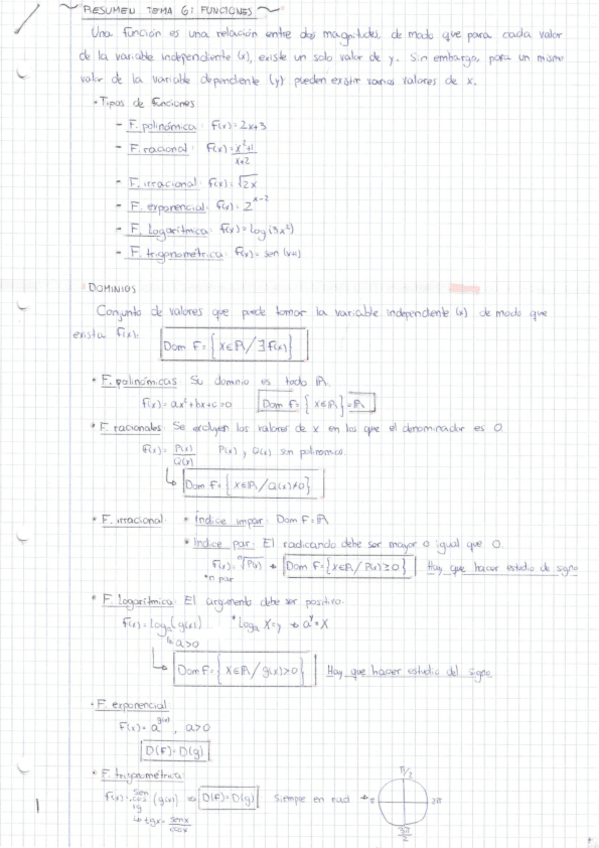 RESUMEN TEMA 6: FUNCIONES
Una función es una relación entre dos magnitudes, de modo que para cada valor
de la variable independiente (x), existe un solo valor de y. Sin embargo, para un mismo
valor de la variable dependiente (y) pueden existir varios valores de x.
- Tipos de funciones
- F. polinómica: f(x)=2x+3
- F. racional: f(x)=x²+1/x+2
- F. irracional: f(x)=√2x
- F. exponencial: f(x)=2^x-2
- F. logarítmica: f(x)=log(3x²)
- F. trigonométrica: f(x)= sen (x+1)
DOMINIOS
Conjunto de valores que puede tomar la variable independiente (x) de modo que
exista f(x): Dom F={x∈ℝ/∃f(x)}
* F. polinómicas: Su dominio es todo ℝ.
f(x)=ax²+bx+c=0 Dom f={x∈ℝ}=ℝ
* F. racionales: Se excluyen los valores de x en los que el denominador es 0
f(x)=P(x)/Q(x) P(x), Q(x) son polinomios.
↳ Dom F={x∈ℝ/Q(x)≠0}
* F. irracional: * Índice impar: Dom F=ℝ
* Índice par: El radicando debe ser mayor o igual que 0.
f(x)=ⁿ√P(x) → Dom F={x∈ℝ/P(x)≥0} Hay que hacer estudio de signo
*n par
* F. logarítmica: El argumento debe ser positivo.
f(x)=logₐ(g(x)) *logₐ x=y → a^y=x
↳ a>0
↳ Dom F={x∈ℝ/g(x)>0} Hay que hacer estudio del signo
- F. exponencial
f(x)=a^g(x), a>0
D(F)=D(g)
* F. trigonométrica
f(x)= sen cos tg (g(x)) → D(F)=D(g) Siempre en rad → π π/2 2π 3π/2
↳ tgx= senx/cosx